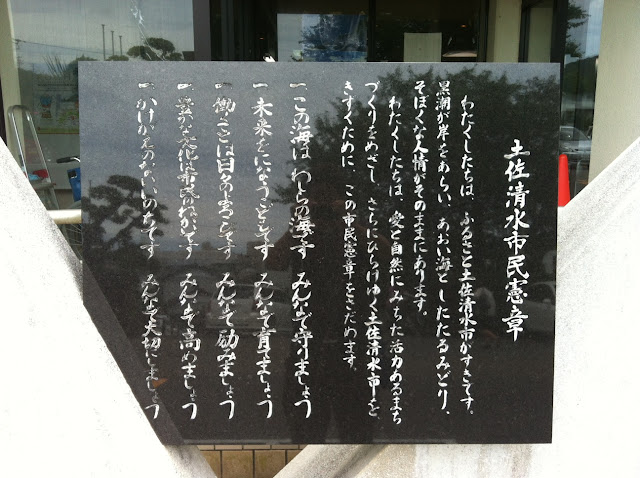 土佐清水市民憲章
わたくしたちは、ふるさと土佐清水市がすきです。
黒潮が岸をあらい、あおい海としたたるみどり、
そぼくな人情がそのままにあります。
わたくしたちは、愛と自然にみちた活力あるまち
づくりをめざし、さらにひらけゆく土佐清水市を
きずくために、この市民憲章をさだめます。
一 この海は わしらの海です みんなで守りましょう
一 未来をになうこどもです みんなで育てましょう
一 働くことは日々のよろこびです みんなで励みましょう
一 豊かな文化は市民のねがいです みんなで高めましょう
一 かけがえのないいのちです みんなで大切にしましょう